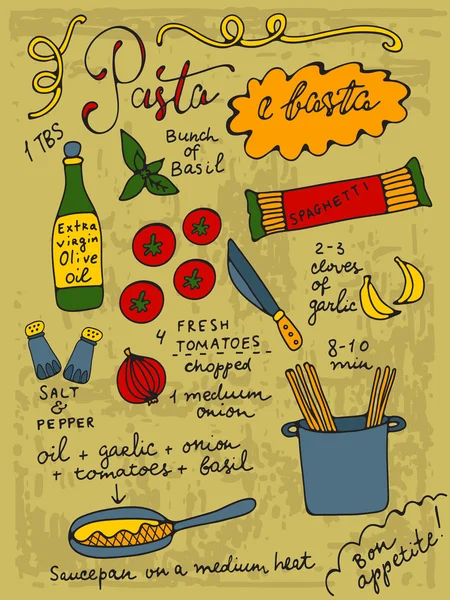 Pasta
e basta
1 TBS
Bunch
of
Basil
Extra
virgin
Olive
oil
SPAGHETTI
2-3
cloves
of
garlic
4 FRESH
TOMATOES
chopped
8-10
min
SALT
&
PEPPER
1 medium
onion
oil + garlic + onion
+ tomatoes + basil
Saucepan on a medium heat
Bon
appetite!